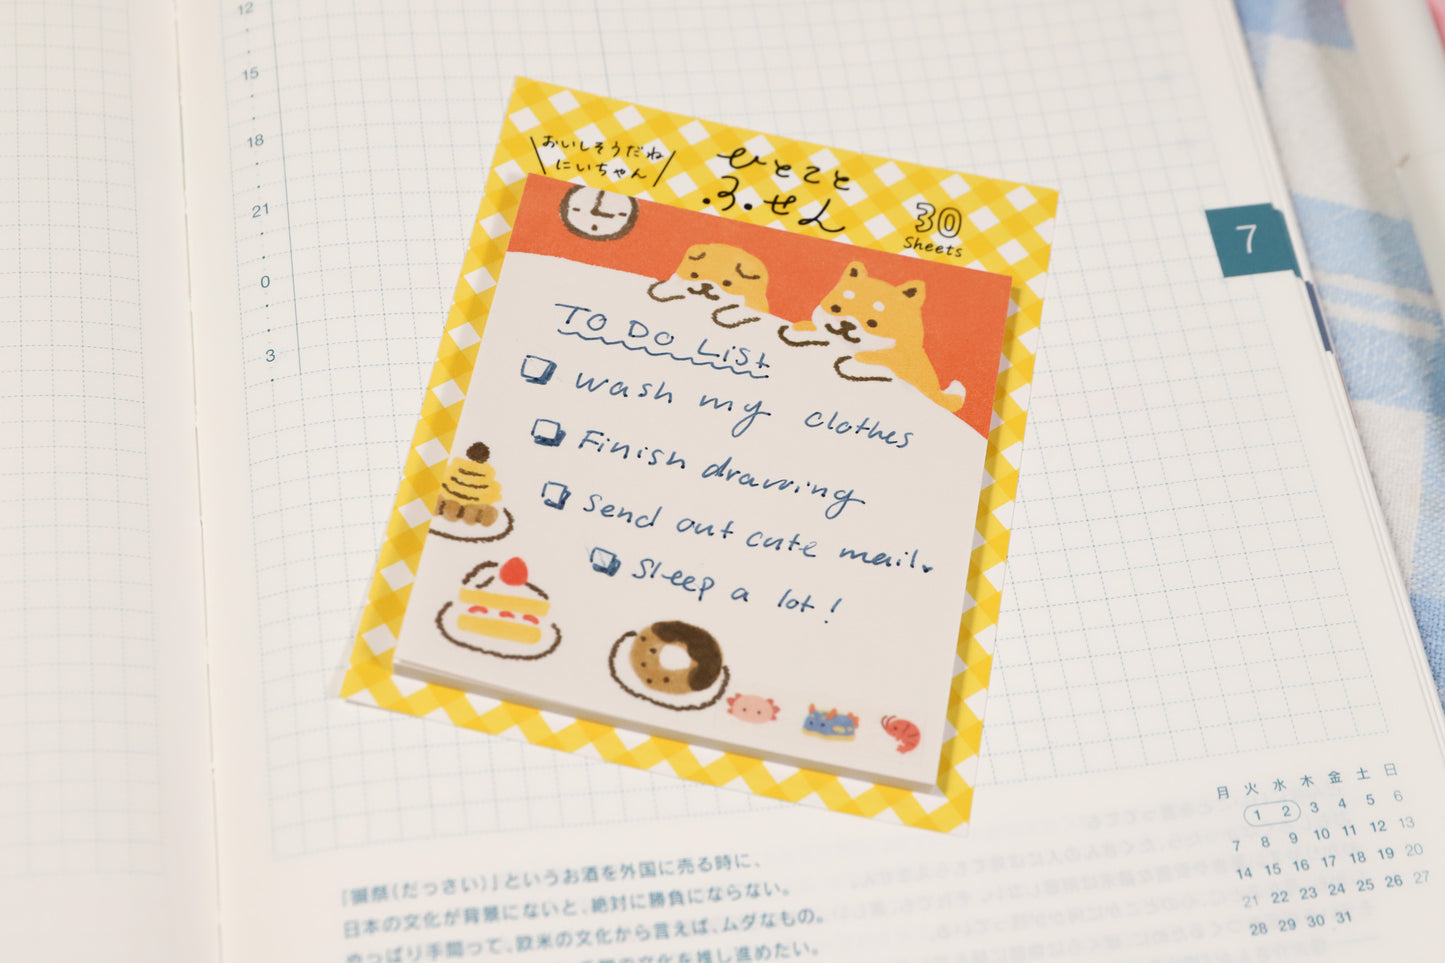 12
15
18
21
0
3
おいしそうだね
にいちゃん
ひとこと
ふせん
30
Sheets
7
TO DO LiSt
wash my clothes
Finish drawing
Send out cute mail
Sleep a lot!
月 火 水 木 金 土 日
1 2 3 4 5 6
7 8 9 10 11 12 13
14 15 16 17 18 19 20
21 22 23 24 25 26 27
28 29 30 31
「獺祭(だっさい)」というお酒を外国に売る時に、
日本の文化が背景にないと、絶対に勝負にならない。
やっぱり手間って、欧米の文化から言えば、ムダなもの。
の文化を推し進めたい。